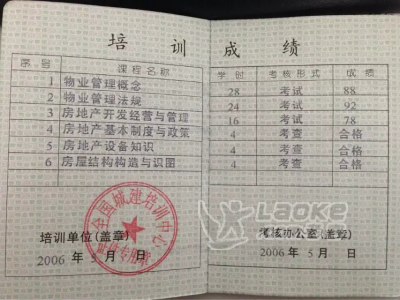 培训成绩
序号 课程名称 学时 考核形式 成绩
1 物业管理概念 28 考试 88
2 物业管理法规 24 考试 92
3 房地产开发经营与管理 16 考试 78
4 房地产基本制度与政策 4 考查 合格
5 房地产设备知识 4 考查 合格
6 房屋结构构造与识图 4 考查 合格
全国城建培训中心
培训单位(盖章) 考核办公室(盖章)
2006 年 5 月 日 2006 年 5 月 日
LAOKE